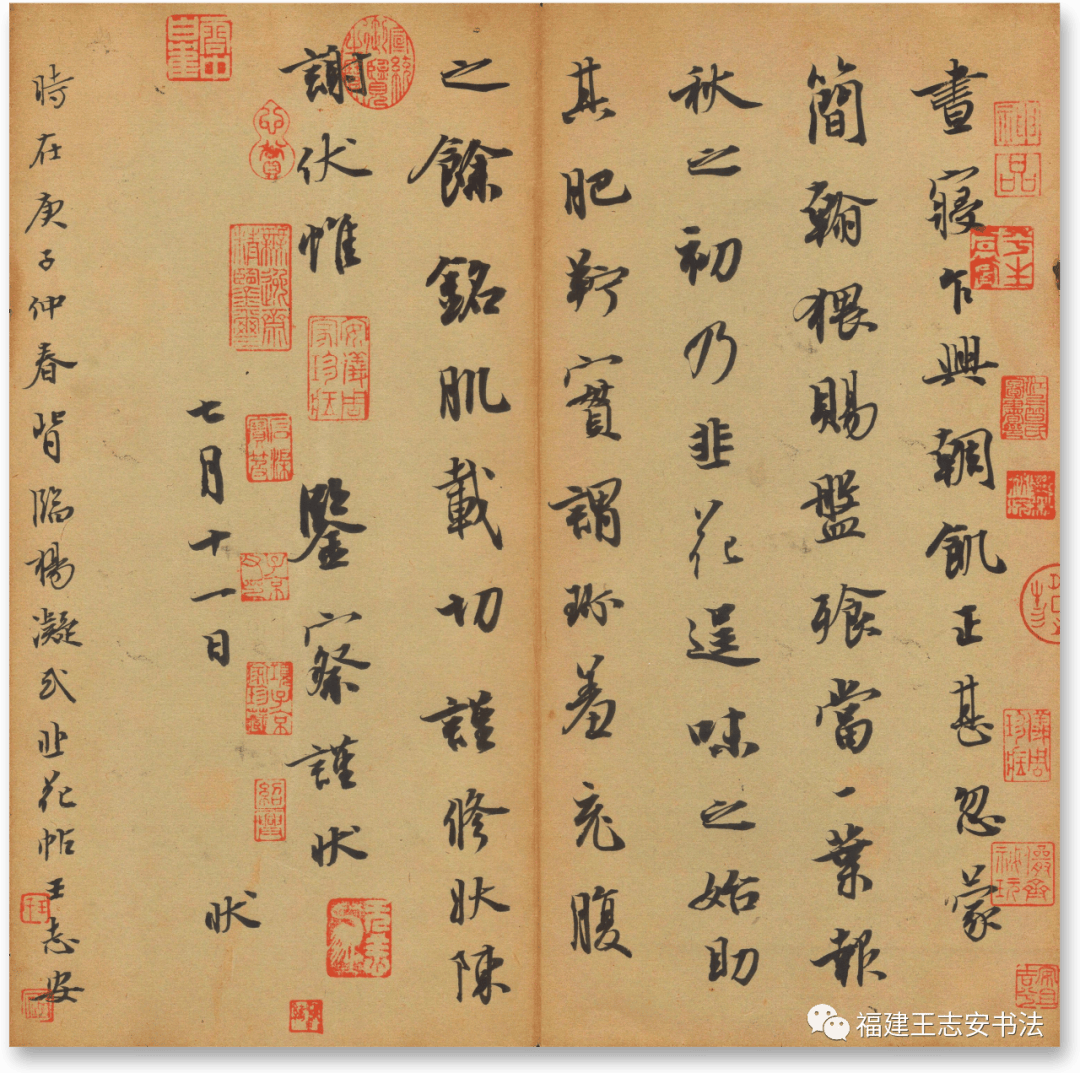 晝寢乍興輖飢正甚忽蒙
簡翰猥賜盤飧當一葉報
秋之初乃韭花逞味之始助
其肥羜實謂珍羞充腹
之餘銘肌載切謹修狀陳
謝伏惟鑒察謹狀
七月十一日狀
時在庚子仲春背臨楊凝式韭花帖王志安
神品
安儀周家珍藏
項子京家珍藏
福建王志安书法